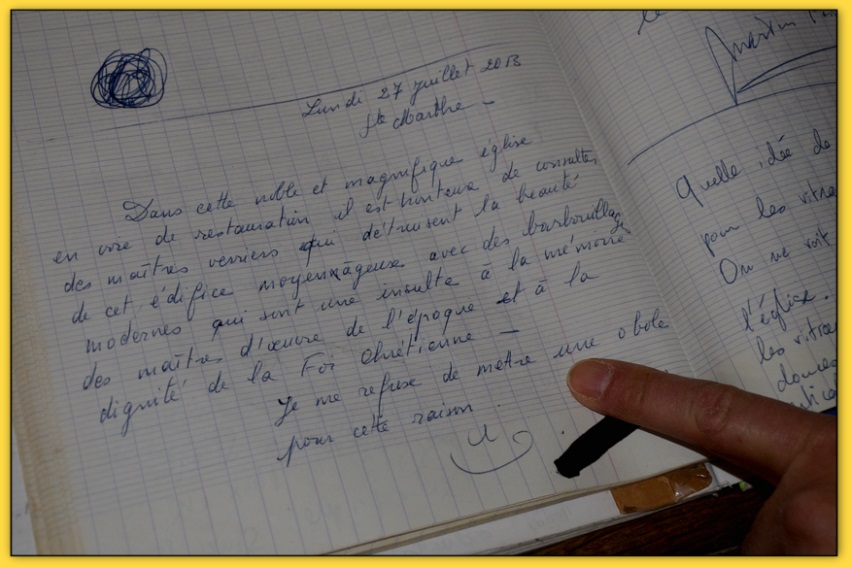 Lundi 27 juillet 2013
Ste Marthe -
Dans cette noble et magnifique église
en voie de restauration il est honteux de consulter
des maîtres verriers qui détruisent la beauté
de cet édifice moyenâgeuse avec des barbouillages
modernes qui sont une insulte à la mémoire
des maîtres d'œuvre de l'époque et à la
dignité de la Foi Chrétienne -
Je me refuse de metre une obole
pour cette raison.
le
Martin
Quelle idée de
pour les vitra
On ne voit
l'église.
les vitra